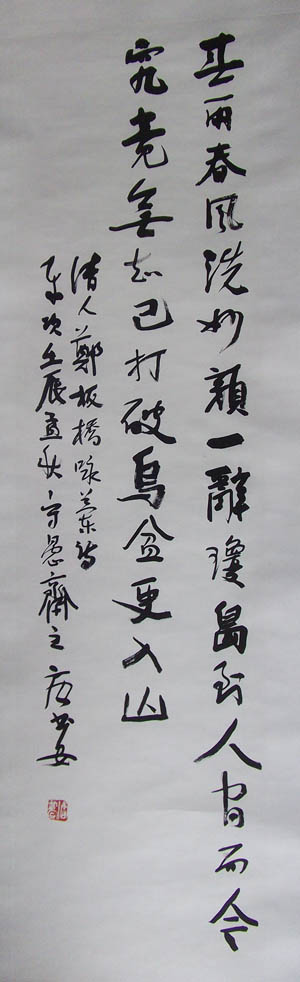 春雨春風洗妙顏一辭瓊島到人間而今
究竟無知己打破烏盆更入山
清人鄭板橋咏蘭詩
歲次壬辰孟秋守愚齋主